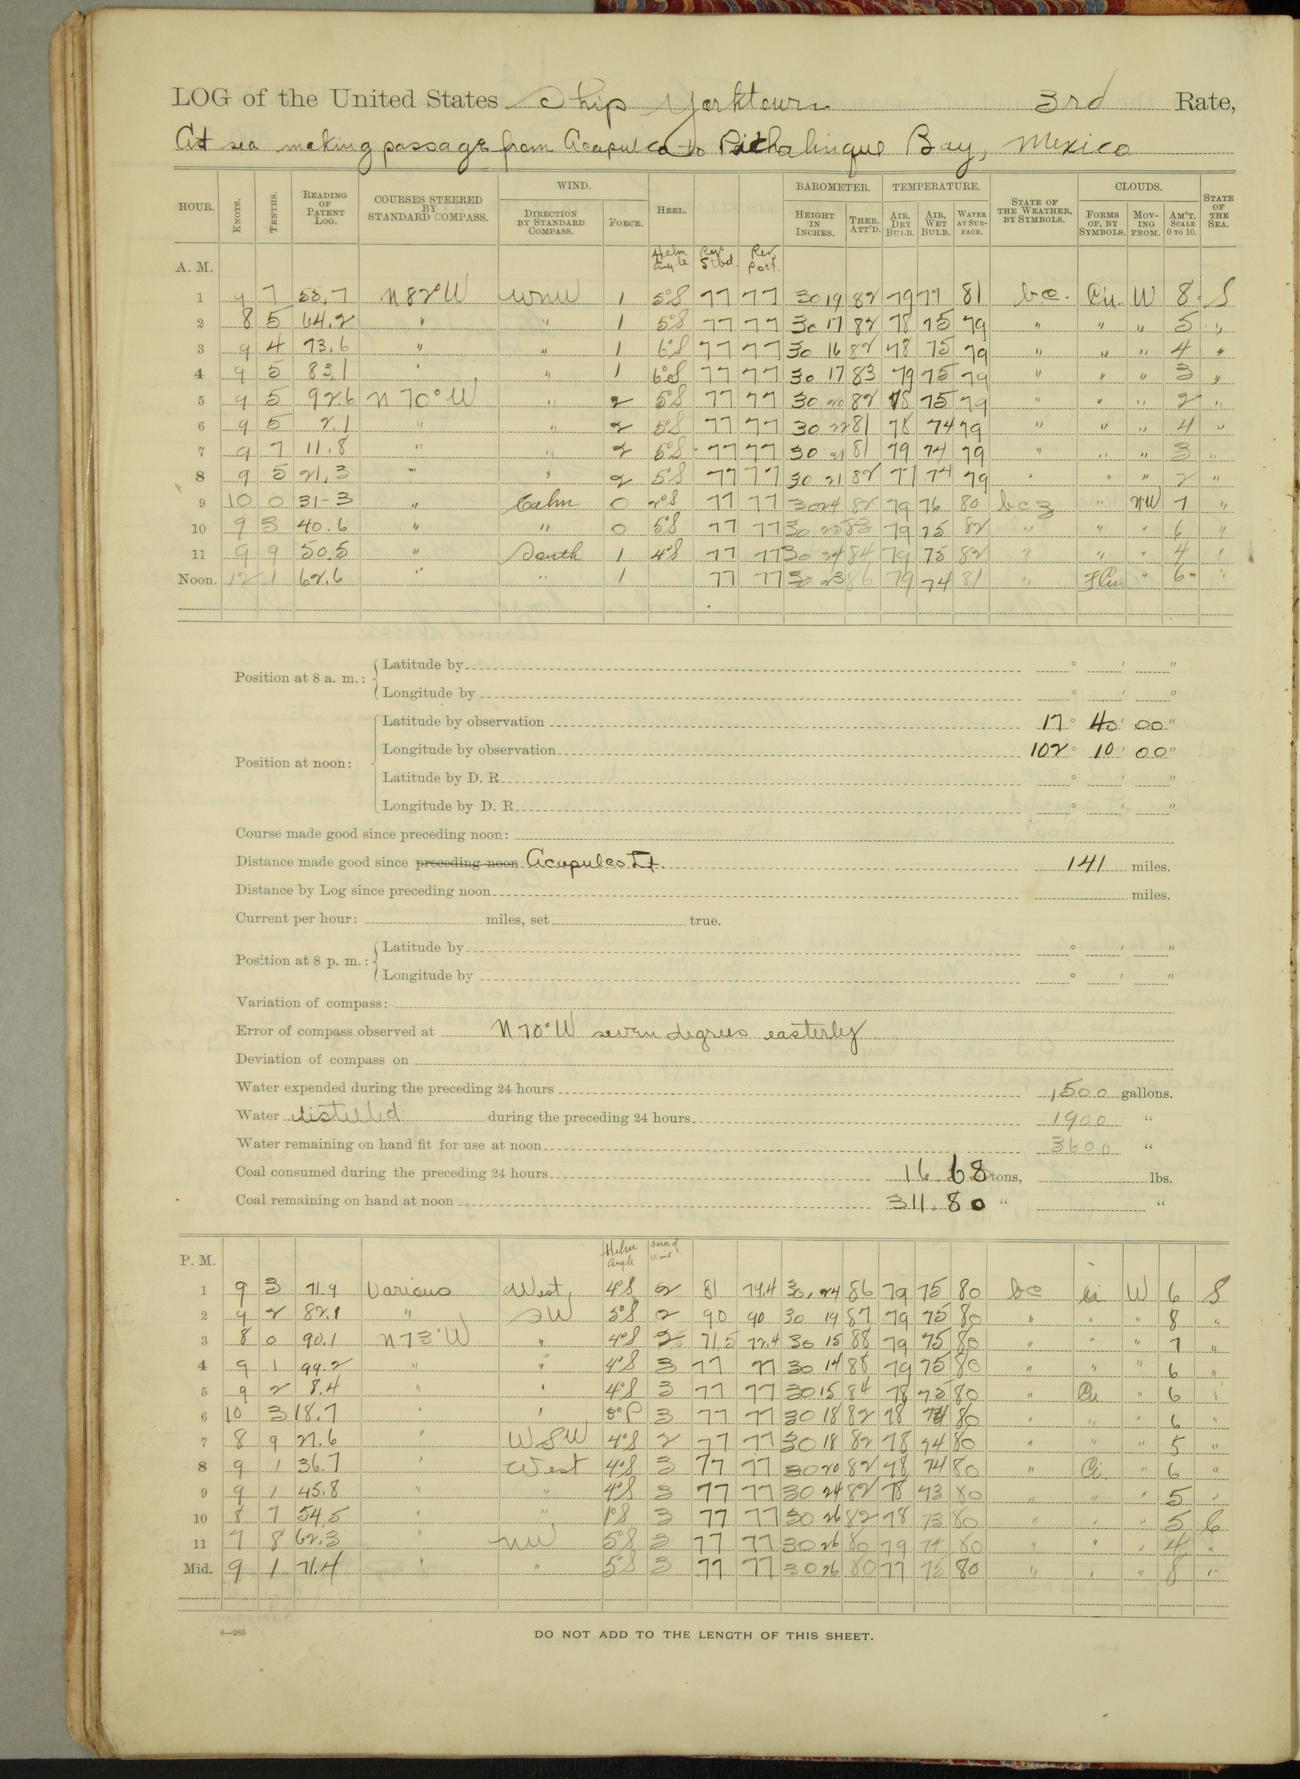 LOG of the United States Ship Yorktown 3rd Rate,
At sea making passage from Acapulco to Pichalinque Bay, Mexico
HOUR. KNOTS. TENTHS. READING OF PATENT LOG. COURSES STEERED BY STANDARD COMPASS. WIND. DIRECTION BY STANDARD COMPASS. FORCE. HEEL. BAROMETER. HEIGHT IN INCHES. THER. ATT'D. TEMPERATURE. AIR, DRY BULB. AIR, WET BULB. WATER AT SURFACE. STATE OF THE WEATHER, BY SYMBOLS. CLOUDS. FORMS OF, BY SYMBOLS. MOVING FROM. AM'T. SCALE 0 TO 10. STATE OF THE SEA.
A. M. Helm Angle Rev. Stbd. Rev. Port.
1 9 7 55.7 N 82° W WNW 1 5°S 77 77 30 19 82 79 77 81 bc. Cu. W 8 S
2 8 5 64.2 " " 1 5°S 77 77 30 17 82 78 75 79 " " " 5 "
3 9 4 73.6 " " 1 6°S 77 77 30 16 82 78 75 79 " " " 4 "
4 9 5 83.1 " " 1 6°S 77 77 30 17 83 79 75 79 " " " 3 "
5 9 5 92.6 N 70° W " 2 5°S 77 77 30 20 82 78 75 79 " " " 2 "
6 9 5 2.1 " " 2 5°S 77 77 30 22 81 78 74 79 " " " 4 "
7 9 7 11.8 " " 2 5°S 77 77 30 21 81 79 74 79 " " " 3 "
8 9 5 21.3 " " 2 5°S 77 77 30 21 82 77 74 79 " " " 2 "
9 10 0 31-3 " Calm 0 2°S 77 77 30 24 82 79 76 80 bcz " NW 7 "
10 9 3 40.6 " " 0 5°S 77 77 30 25 83 79 75 82 " " " 6 "
11 9 9 50.5 " South 1 4°S 77 77 30 24 84 79 75 82 " " " 4 "
Noon. 12 1 62.6 " " 1 77 77 30 23 86 79 74 81 " " 6 "
Position at 8 a. m.: Latitude by ° ' "
Longitude by ° ' "
Position at noon: Latitude by observation 17° 40' 00"
Longitude by observation 102° 10' 00"
Latitude by D. R. ° ' "
Longitude by D. R. ° ' "
Course made good since preceding noon:
Distance made good since preceding noon Acapulco Lt. 141 miles.
Distance by Log since preceding noon miles.
Current per hour: miles, set true.
Position at 8 p. m.: Latitude by ° ' "
Longitude by ° ' "
Variation of compass:
Error of compass observed at N 70° W seven degrees easterly
Deviation of compass on
Water expended during the preceding 24 hours 1,500 gallons.
Water distilled during the preceding 24 hours 1900 "
Water remaining on hand fit for use at noon 3600 "
Coal consumed during the preceding 24 hours 16.68 tons, lbs.
Coal remaining on hand at noon 311.80 " "
P. M. Helm Angle Wind
1 9 3 71.9 Various West 4°S 2 81 79.4 30.24 86 79 75 80 bc Ci W 6 S
2 9 2 82.1 " SW 5°S 2 90 90 30 19 87 79 75 80 " " " 8 "
3 8 0 90.1 N 73° W " 4°S 2 71.5 72.4 30 15 88 79 75 80 " " " 7 "
4 9 1 99.2 " " 4°S 3 77 77 30 14 88 79 75 80 " " " 6 "
5 9 2 8.4 " " 4°S 3 77 77 30 15 84 78 75 80 " Cu " 6 "
6 10 3 18.7 " " 5°P 3 77 77 30 18 82 78 74 80 " " " 6 "
7 8 9 27.6 " WSW 4°S 2 77 77 30 18 82 78 74 80 " " " 5 "
8 9 1 36.7 " West 4°S 3 77 77 30 20 82 78 74 80 " Ci. " 6 "
9 9 1 45.8 " " 4°S 3 77 77 30 24 82 78 73 80 " " " 5 "
10 8 7 54.5 " " 1°S 3 77 77 30 26 82 78 73 80 " " " 5 C
11 7 8 62.3 " NW 5°S 3 77 77 30 26 80 79 74 80 " " " 4 "
Mid. 9 1 71.4 " " 5°S 3 77 77 30 26 80 77 75 80 " " " 8 "
4—265
DO NOT ADD TO THE LENGTH OF THIS SHEET.